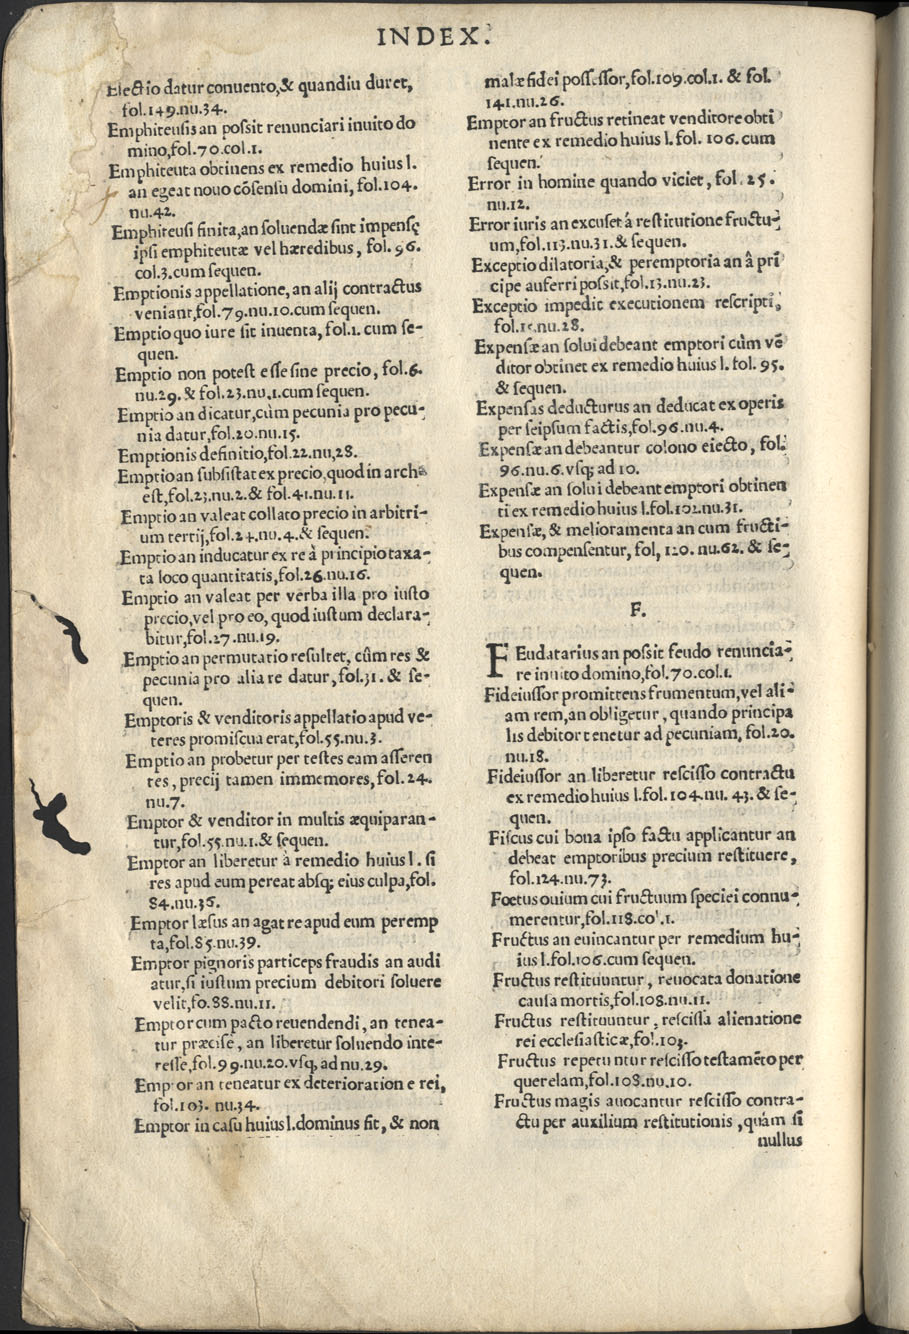 INDEX.
Electio datur conuento,& quandiu duret,
fol.149.nu.34.
Emphiteusis an possit renunciari inuito do
mino,fol.70.col.1.
Emphiteuta obtinens ex remedio huius l.
an egeat nouo cõsensu domini, fol.104.
nu.42.
Emphiteusi finita,an soluendæ sint impensę
ipsi emphiteutæ vel hæredibus, fol.96.
col.3.cum sequen.
Emptionis appellatione, an alij contractus
veniant,fol.79.nu.10.cum sequen.
Emptio quo iure sit inuenta, fol.1. cum se-
quen.
Emptio non potest esse sine precio, fol.6.
nu.29. & fol.23.nu.1.cum sequen.
Emptio an dicatur,cùm pecunia pro pecu-
nia datur,fol.20.nu.15.
Emptionis definitio,fol.22.nu,28.
Emptio an subsistat ex precio,quod in arch
est,fol.23.nu.2.& fol.41.nu.11.
Emptio an valeat collato precio in arbitri-
um tertij,fol.24.nu.4.& sequen.
Emptio an inducatur ex re à principio taxa-
ta loco quantitatis,fol.26.nu.16.
Emptio an valeat per verba illa pro iusto
precio,vel pro eo, quod iustum declara-
bitur,fol.27.nu.19.
Emptio an permutatio resultet, cûm res &
pecunia pro alia re datur, fol.31. & se-
quen.
Emptoris & venditoris appellatio apud ve-
teres promiscua erat,fol.55.nu.3.
Emptio an probetur per testes eam asseren
tes, precij tamen immemores, fol.24.
nu.7.
Emptor & venditor in multis æquiparan-
tur,fol.55.nu.1.& sequen.
Emptor an liberetur à remedio huius l. si
res apud eum pereat absq; eius culpa,fol.
84.nu.36.
Emptor læsus an agat re apud eum peremp
ta,fol.85.nu.39.
Emptor pignoris particeps fraudis an audi
atur,si iustum precium debitori soluere
velit,fo.88.nu.11.
Emptor cum pacto reuendendi, an tenea-
tur præcise, an liberetur soluendo inte-
resse,fol.99.nu.20.vsq, ad nu.29.
Emptor an teneatur ex deterioratione rei,
fol.103. nu.34.
Emptor in casu huius l.dominus fit, & non
malæ fidei possessor,fol.109.col.1. & fol.
141.nu.26.
Emptor an fructus retineat venditore obti
nente ex remedio huius l. fol. 106. cum
sequen.
Error in homine quando viciet, fol. 25.
nu.12.
Error iuris an excuset á restitutione fructu-
um,fol.113.nu.31.& sequen.
Exceptio dilatoria,& peremptoria an â pri
cipe auferri possit,fol.13.nu.23.
Exceptio impedit executionem rescripti,
nu.28.
Expensæ an solui debeant emptori cùm vẽ
ditor obtinet ex remedio huius l. fol. 95.
& sequen.
Expensas deducturus an deducat ex operis
per seipsum factis,fol.96.nu.4.
Expensæ an debeantur colono eiecto, fol.
96.nu.6.vsq; ad 10.
Expensæ an solui debeant emptori obtinen
ti ex remedio huius l.fol.102.nu.31.
Expensæ, & melioramenta an cum fructi-
bus compensentur, fol, 120. nu.62. & se-
quen.
F.
FEudatarius an possit feudo renuncia-
re inuito domino,fol.70.col.1.
Fideiussor promittens frumentum,vel ali-
am rem,an obligetur, quando principa
lis debitor tenetur ad pecuniam, fol.20.
nu.18.
Fideiussor an liberetur rescisso contractu
ex remedio huius l.fol.104.nu. 43. & se-
quen.
Fiscus cui bona ipso factu applicantur an
debeat emptoribus precium restituere,
fol.124.nu.73.
Foetus ouium cui fructuum speciei connu-
merentur,fol.118.col.1.
Fructus an euincantur per remedium hu-
ius l.fol.106.cum sequen.
Fructus restituuntur, reuocata donatione
causa mortis,fol.108.nu.11.
Fructus restituuntur, rescissa alienatione
rei ecclesiasticæ,fol.103.
Fructus repetuntur rescisso testamẽto per
querelam,fol.108.nu.10.
Fructus magis auocantur rescisso contra-
ctu per auxilium restitutionis, quàm si
nullus